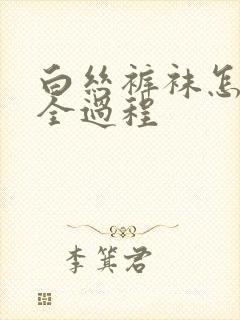 白丝裤袜怎
全过程
李箕君